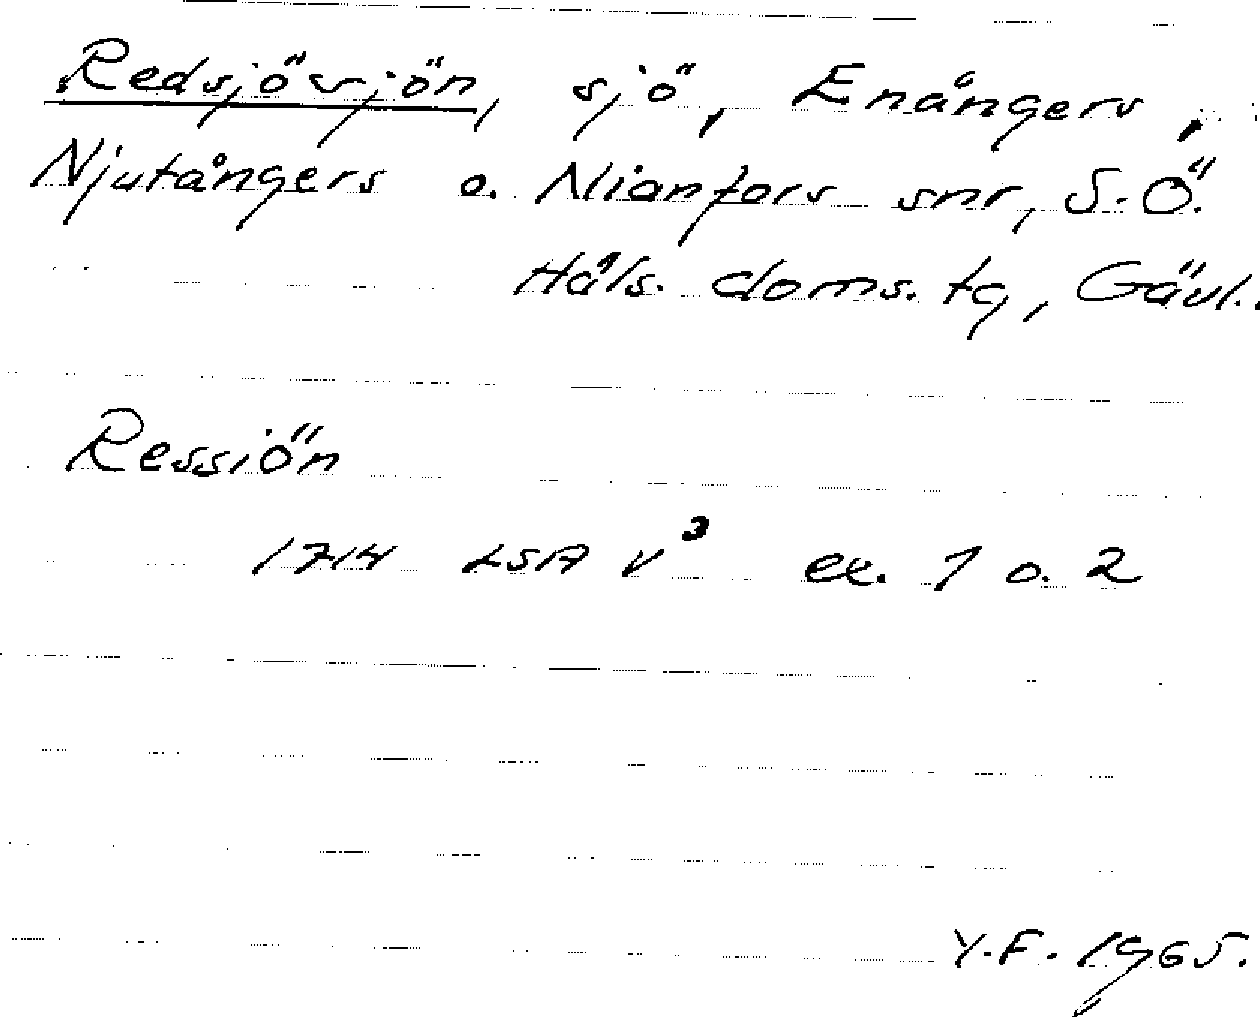 Redsjösjön, sjö, Enångers,
Njutångers o. Nianfors snr, S.Ö.
Häls. doms. tg, Gävl.
Ressiön
1714 LSA V³ ex. 1 o. 2
Y.F. 1965.